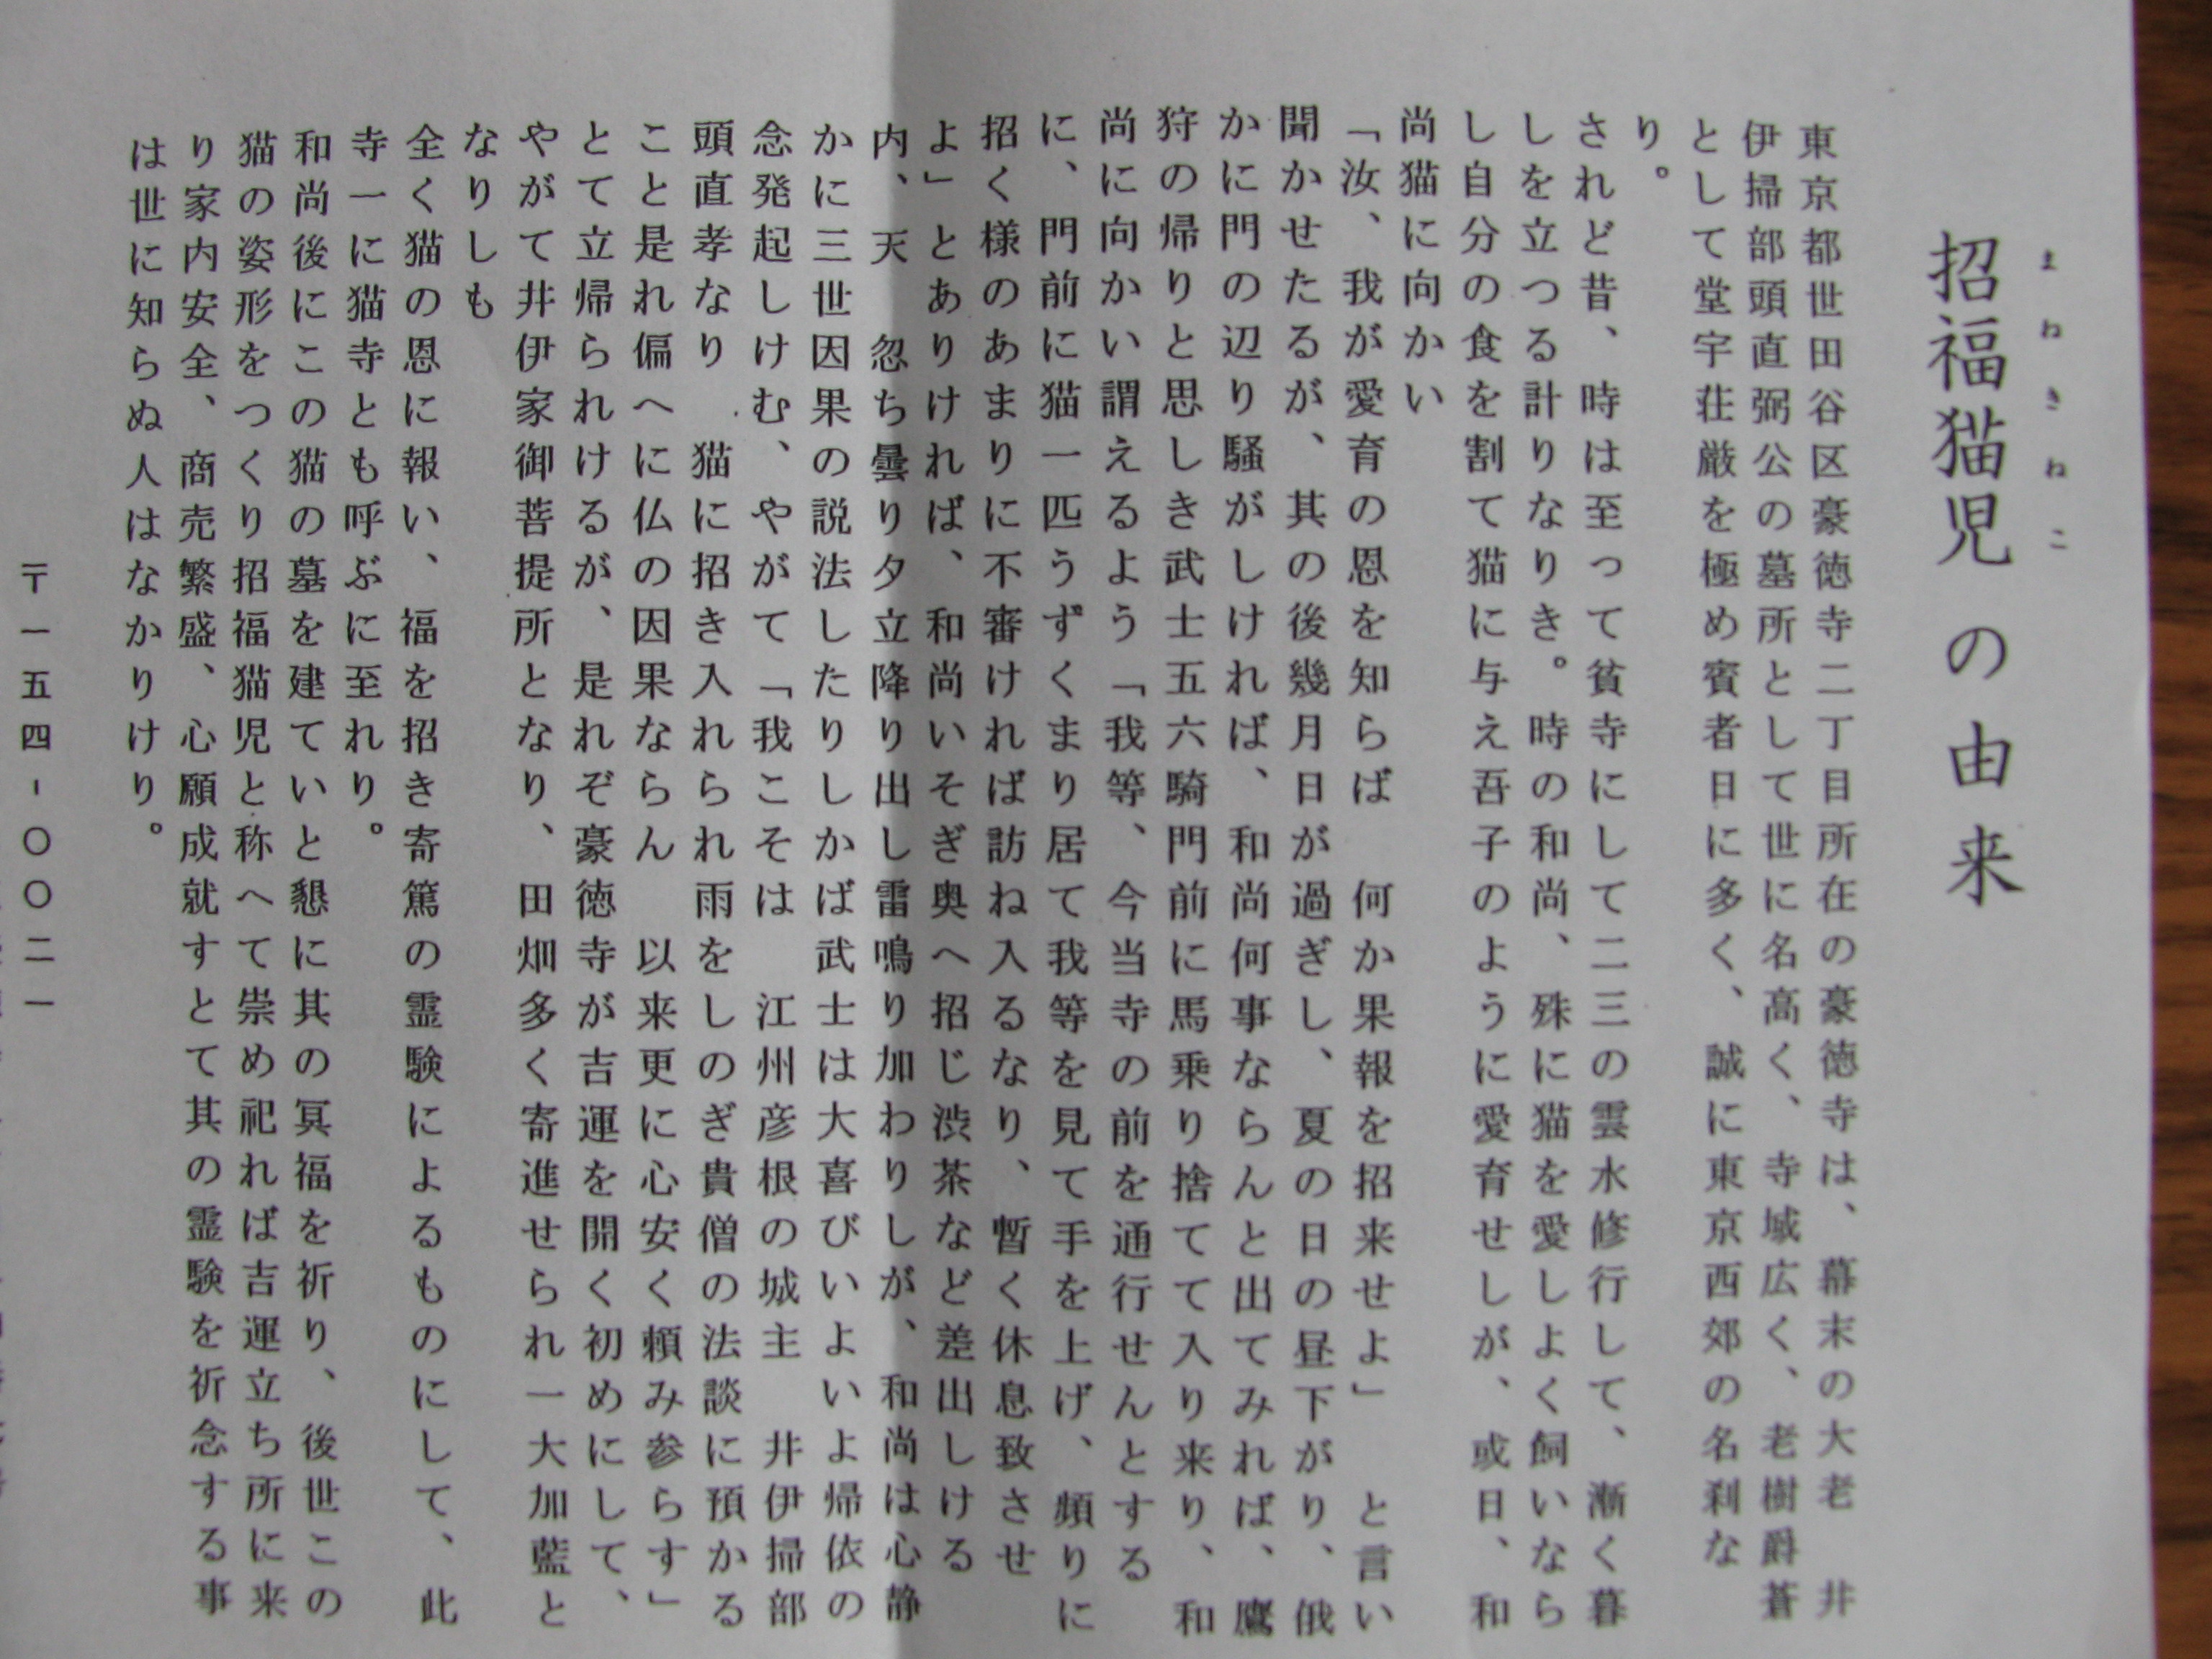 まねきねこ
招福猫児の由来
東京都世田谷区豪徳寺二丁目所在の豪徳寺は、幕末の大老　井
伊掃部頭直弼公の墓所として世に名高く、寺城広く、老樹爵蒼
として堂宇荘厳を極め賓者日に多く、誠に東京西郊の名刹な
り。
されど昔、時は至って貧寺にして二三の雲水修行して、漸く暮
しを立つる計りなりき。時の和尚、殊に猫を愛しよく飼いなら
し自分の食を割て猫に与え吾子のように愛育せしが、或日、和
尚猫に向かい
「汝、我が愛育の恩を知らば　何か果報を招来せよ」　と言い
聞かせたるが、其の後幾月日が過ぎし、夏の日の昼下がり、俄
かに門の辺り騒がしければ、和尚何事ならんと出てみれば、鷹
狩の帰りと思しき武士五六騎門前に馬乗り捨てて入り来り、和
尚に向かい謂えるよう「我等、今当寺の前を通行せんとする
に、門前に猫一匹うずくまり居て我等を見て手を上げ、頻りに
招く様のあまりに不審ければ訪ね入るなり、暫く休息致させ
よ」とありければ、和尚いそぎ奥へ招じ渋茶など差出しける
内、天　忽ち曇り夕立降り出し雷鳴り加わりしが、和尚は心静
かに三世因果の説法したりしかば武士は大喜びいよいよ帰依の
念発起しけむ、やがて「我こそは　江州彦根の城主　井伊掃部
頭直孝なり　猫に招き入れられ雨をしのぎ貴僧の法談に預かる
こと是れ偏へに仏の因果ならん　以来更に心安く頼み参らす」
とて立帰られけるが、是れぞ豪徳寺が吉運を開く初めにして、
やがて井伊家御菩提所となり、田畑多く寄進せられ一大加藍と
なりしも
全く猫の恩に報い、福を招き寄篤の霊験によるものにして、此
寺一に猫寺とも呼ぶに至れり。
和尚後にこの猫の墓を建ていと懇に其の冥福を祈り、後世この
猫の姿形をつくり招福猫児と称へて崇め祀れば吉運立ち所に来
り家内安全、商売繁盛、心願成就すとて其の霊験を祈念する事
は世に知らぬ人はなかりけり。
〒一五四-〇〇二一